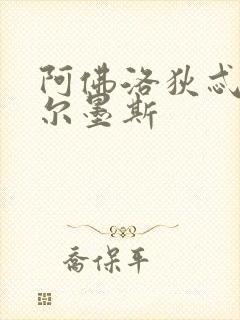 阿佛洛狄忒
尔墨斯
喬保平